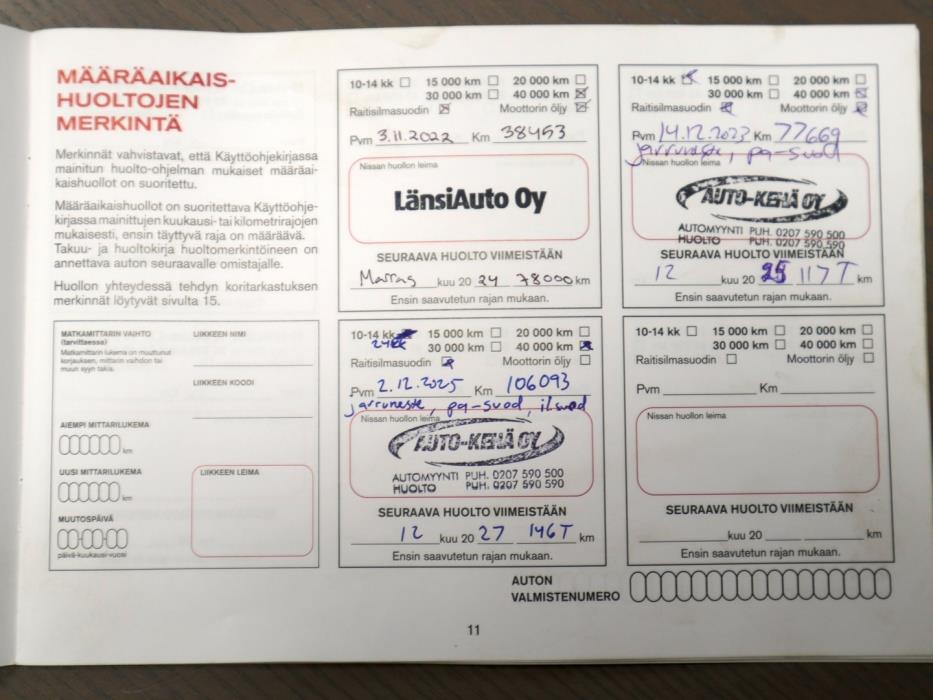 MÄÄRÄAIKAIS-
HUOLTOJEN
MERKINTÄ
Merkinnät vahvistavat, että Käyttöohjekirjassa
mainitun huolto-ohjelman mukaiset määräai-
kaishuollot on suoritettu.
Määräaikaishuollot on suoritettava Käyttöohje-
kirjassa mainittujen kuukausi- tai kilometrirajojen
mukaisesti, ensin täyttyvä raja on määräävä.
Takuu- ja huoltokirja huoltomerkintöineen on
annettava auton seuraavalle omistajalle.
Huollon yhteydessä tehdyn koritarkastuksen
merkinnät löytyvät sivulta 15.
10-14 kk 15 000 km 20 000 km
30 000 km 40 000 km
Raitisilmasuodin Moottorin öljy
Pvm 3.11.2022 Km 38453
Nissan huollon leima
LänsiAuto Oy
SEURAAVA HUOLTO VIIMEISTÄÄN
Marras kuu 20 24 78000 km
Ensin saavutetun rajan mukaan.
10-14 kk 15 000 km 20 000 km
30 000 km 40 000 km
Raitisilmasuodin Moottorin öljy
Pvm 14.12.2023 Km 77669
jarruneste, pa-suod
Nissan huollon leima
AUTO-KEHÄ OY
AUTOMYYNTI PUH. 0207 590 500
HUOLTO PUH. 0207 590 590
SEURAAVA HUOLTO VIIMEISTÄÄN
12 kuu 20 25 117T km
Ensin saavutetun rajan mukaan.
MATKAMITTARIN VAIHTO
(tarvittaessa)
Matkamittarin lukema on muuttunut
korjauksen, mittarin vaihdon tai
muun syyn takia.
AIEMPI MITTARILUKEMA
km
UUSI MITTARILUKEMA
km
MUUTOSPÄIVÄ
päivä-kuukausi-vuosi
LIIKKEEN NIMI
LIIKKEEN KOODI
LIIKKEEN LEIMA
10-14 kk 15 000 km 20 000 km
24kk 30 000 km 40 000 km
Raitisilmasuodin Moottorin öljy
Pvm 2.12.2025 Km 106093
jarruneste, pa-suod, il.suod
Nissan huollon leima
AUTO-KEHÄ OY
AUTOMYYNTI PUH. 0207 590 500
HUOLTO PUH. 0207 590 590
SEURAAVA HUOLTO VIIMEISTÄÄN
12 kuu 20 27 146T km
Ensin saavutetun rajan mukaan.
10-14 kk 15 000 km 20 000 km
30 000 km 40 000 km
Raitisilmasuodin Moottorin öljy
Pvm Km
Nissan huollon leima
SEURAAVA HUOLTO VIIMEISTÄÄN
kuu 20 km
Ensin saavutetun rajan mukaan.
AUTON
VALMISTENUMERO
11